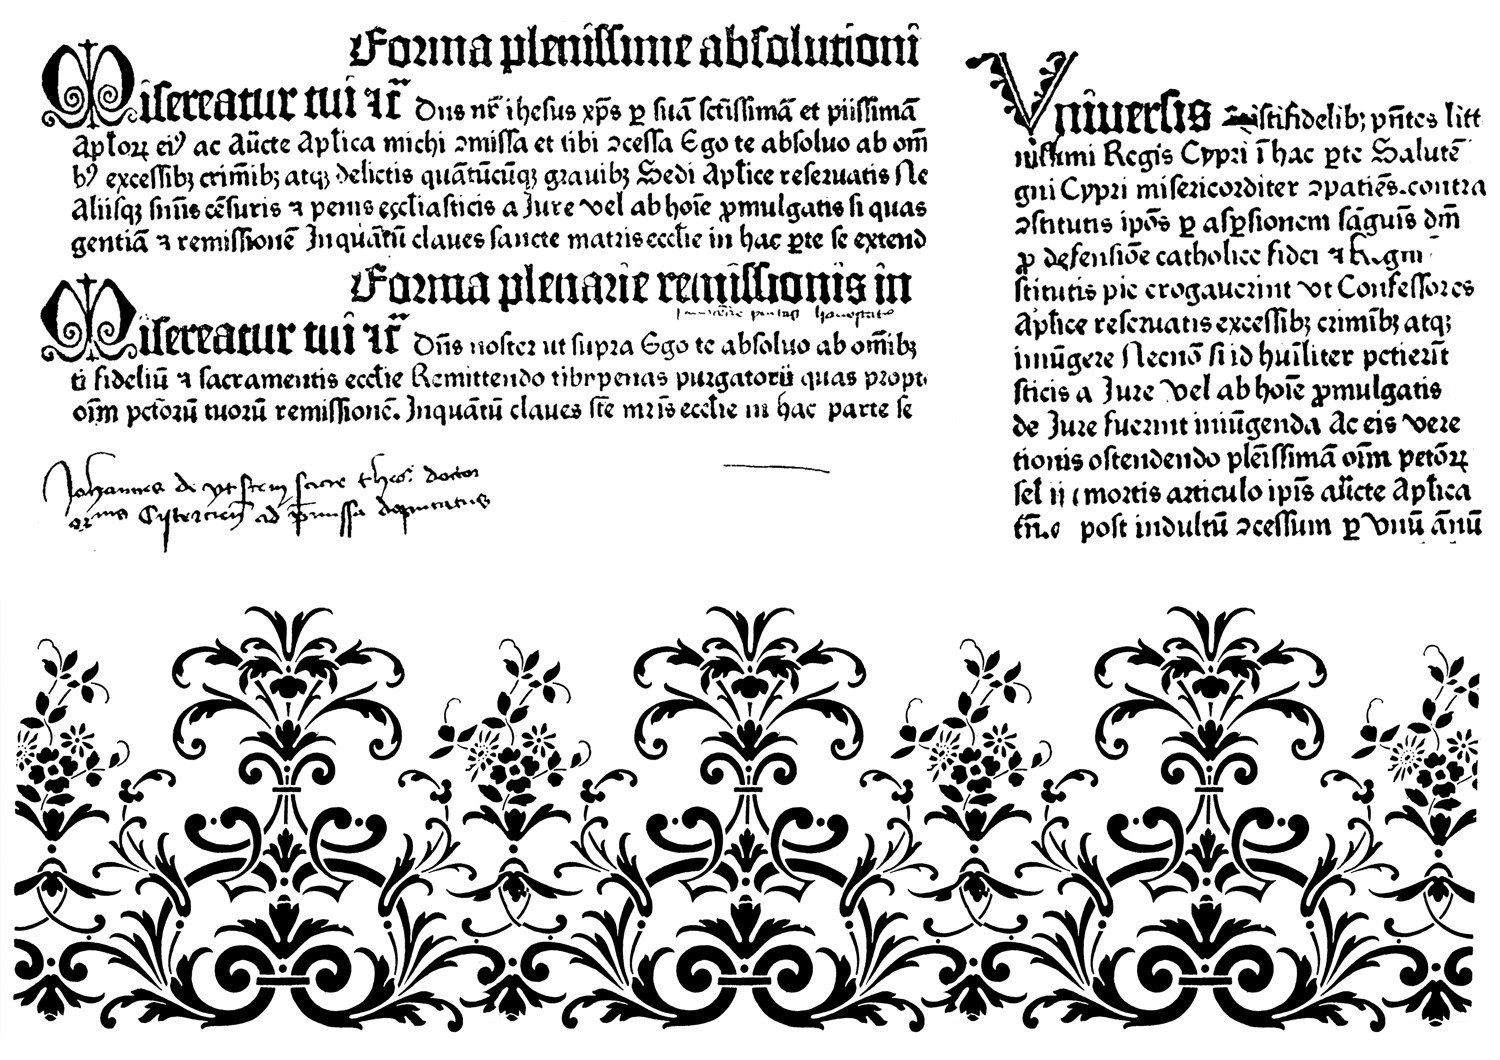 Forma plenissime absolutioni
Misereatur tui ⁊cͬ Dn̄s nr̄ ihesus xp̄s ꝑ suā sctīssimā et piissimā
Apl̄oꝝ eiꝰ ac Aūcte Apl̄ica michi ꝯmissa et tibi ꝯcessa Ego te absoluo ab om̄
bꝰ excessibꝫ crim̄ibꝫ atqꝫ delictis quātūcūqꝫ grauibꝫ Sedi Apl̄ice reseruatis Ne
Aliisqꝫ sn̄iis cēsuris ⁊ penis eccl̄iasticis a Jure vel ab hoīe ꝓmulgatis si quas
gentiā ⁊ remissionē Inquātū claues sancte matris eccl̄ie in hac ꝑte se extend
Forma plenarie remissionis in
Misereatur tui ⁊cͬ Dn̄s noster ut supra Ego te absoluo ab om̄ibꝫ
ti fideliū ⁊ sacramentis eccl̄ie Remittendo tibi penas purgatorii quas propt
oīm pctōrū tuorū remissionē. Inquātū claues scē mr̄is eccl̄ie in hac parte se
Johannes de
ad p̄missa deputatus
Vniuersis xp̄istifidelibꝫ pn̄tes litt
nissimi Regis Cypri ī hac ꝑte Salutē
gni Cypri misericorditer ꝯpatiēs. contra
ꝯstitutis ip̄os ꝑ aspsionem sāguīs dn̄i
ꝓ defensiōe catholice fidei ⁊ Regni
stitutis pie erogauerint vt Confessores
Apl̄ice reseruatis excessibꝫ crimībꝫ atqꝫ
iniūgere Necnō si id huīliter petierīt
sticis a Jure vel ab hoīe ꝓmulgatis
de Jure fuerint iniūgenda Ac eis vere
tionis ostendendo plēīssimā oīm petōꝝ
sel ii mortis articulo ip̄is aūcte Apl̄ica
post indultū ꝯcessum ꝑ Vnū ānū